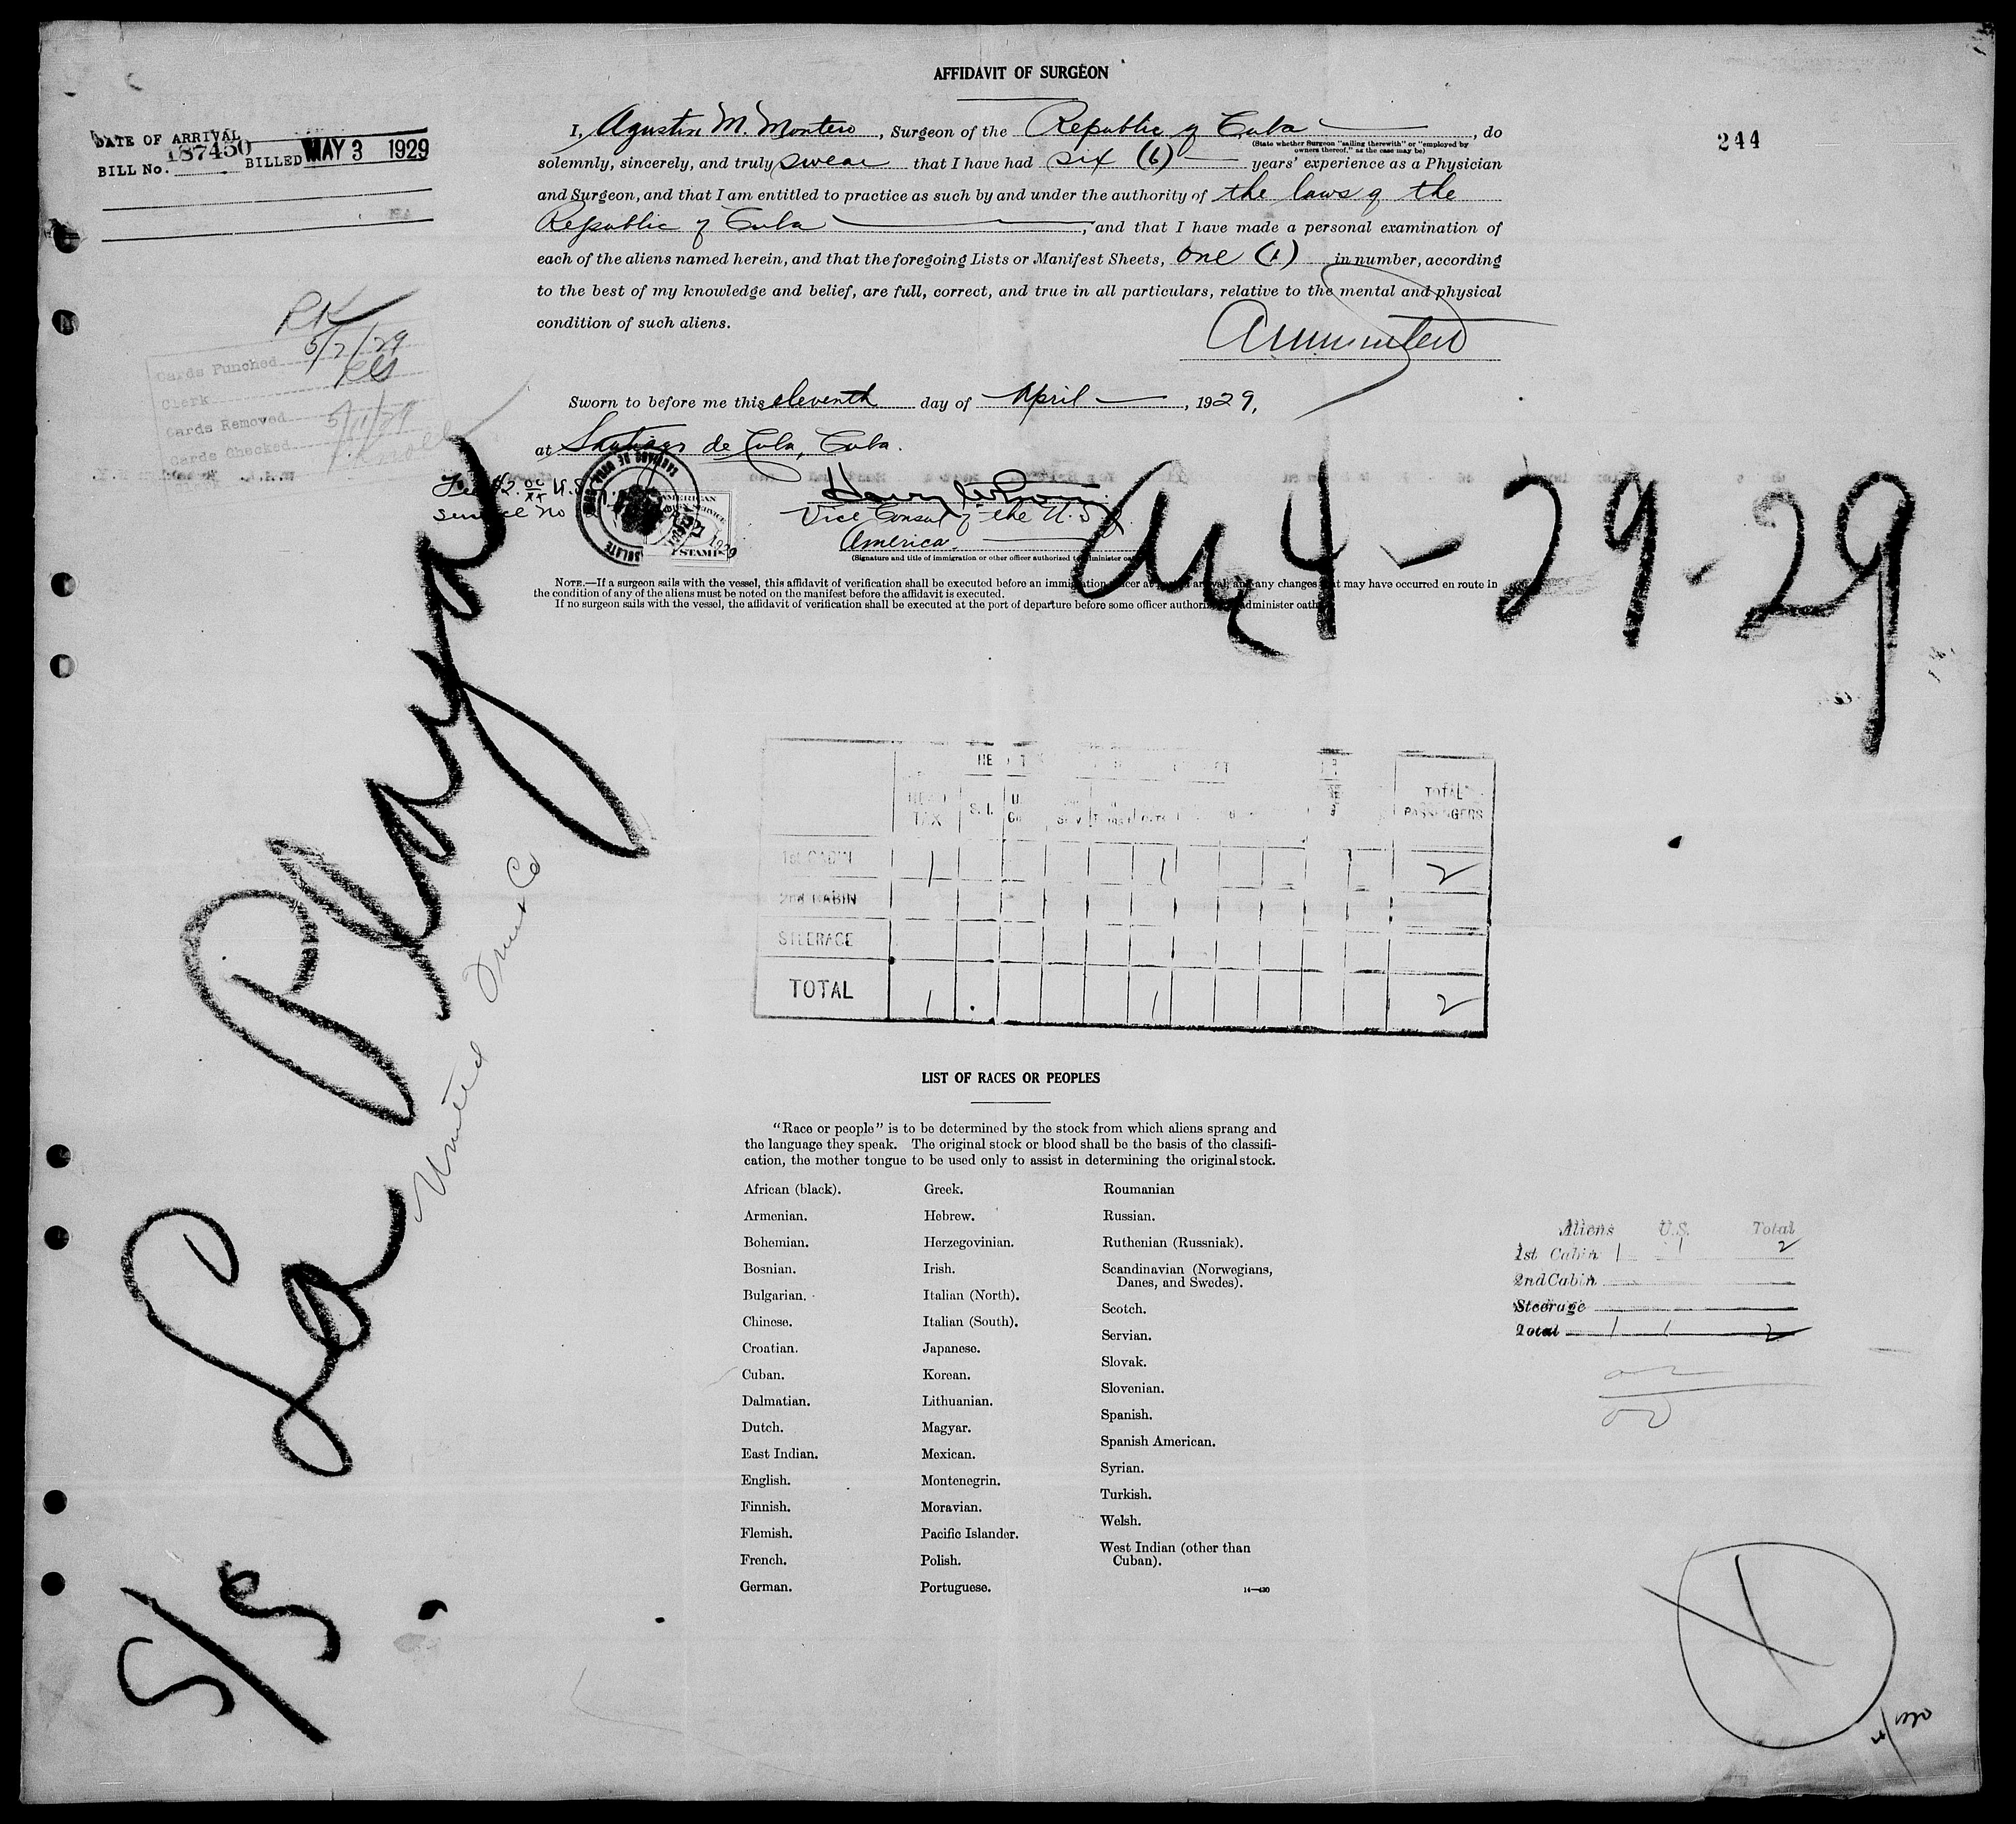 AFFIDAVIT OF SURGEON
244
DATE OF ARRIVAL
BILL No. 187450 BILLED MAY 3 1929
I, Agustin M. Montero, Surgeon of the Republic of Cuba, do
(State whether Surgeon "sailing therewith" or "employed by
owners thereof," as the case may be)
solemnly, sincerely, and truly swear that I have had six (6) years' experience as a Physician
and Surgeon, and that I am entitled to practice as such by and under the authority of the laws of the
Republic of Cuba, and that I have made a personal examination of
each of the aliens named herein, and that the foregoing Lists or Manifest Sheets, one (1) in number, according
to the best of my knowledge and belief, are full, correct, and true in all particulars, relative to the mental and physical
condition of such aliens.
Cards Punched 5/2/29
Clerk
Cards Removed 5/11/29
Cards Checked
Sworn to before me this eleventh day of April, 1929,
at Santiago de Cuba, Cuba.
Fee $2.00 U.S.
Service No
AMERICAN
STAMP
Vice Consul of the U.S. of
America.
(Signature and title of immigration or other officer authorized to administer oaths)
4-29-29
NOTE.—If a surgeon sails with the vessel, this affidavit of verification shall be executed before an immigration officer at port of arrival, and any changes that may have occurred en route in
the condition of any of the aliens must be noted on the manifest before the affidavit is executed.
If no surgeon sails with the vessel, the affidavit of verification shall be executed at the port of departure before some officer authorized to administer oaths.
S/S La Playa
United Fruit Co
HEAD TAX S. I. TOTAL PASSENGERS
1st CABIN 1 1 2
2nd CABIN
STEERAGE
TOTAL 1 1 2
LIST OF RACES OR PEOPLES
"Race or people" is to be determined by the stock from which aliens sprang and
the language they speak. The original stock or blood shall be the basis of the classifi-
cation, the mother tongue to be used only to assist in determining the original stock.
African (black).
Armenian.
Bohemian.
Bosnian.
Bulgarian.
Chinese.
Croatian.
Cuban.
Dalmatian.
Dutch.
East Indian.
English.
Finnish.
Flemish.
French.
German.
Greek.
Hebrew.
Herzegovinian.
Irish.
Italian (North).
Italian (South).
Japanese.
Korean.
Lithuanian.
Magyar.
Mexican.
Montenegrin.
Moravian.
Pacific Islander.
Polish.
Portuguese.
Roumanian
Russian.
Ruthenian (Russniak).
Scandinavian (Norwegians,
Danes, and Swedes).
Scotch.
Servian.
Slovak.
Slovenian.
Spanish.
Spanish American.
Syrian.
Turkish.
Welsh.
West Indian (other than
Cuban).
14—430
Aliens U.S. Total
1st Cabin 1 1 2
2nd Cabin
Steerage
Total 1 1 2